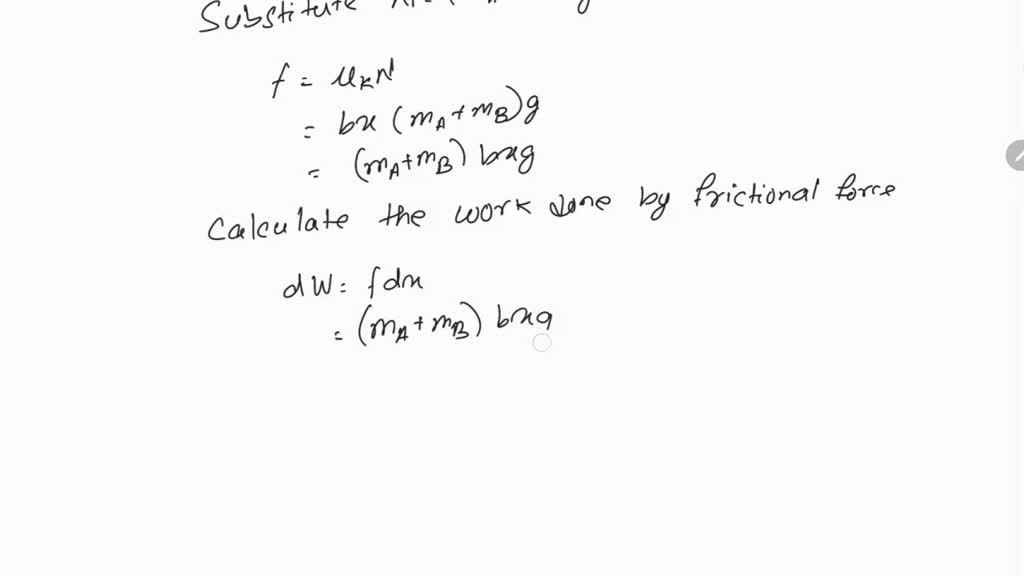 Substitute
f = μₖN
= bx (m_A + m_B)g
= (m_A + m_B) bxg
Calculate the work done by frictional force
dW = fdx
= (m_A + m_B) bxg